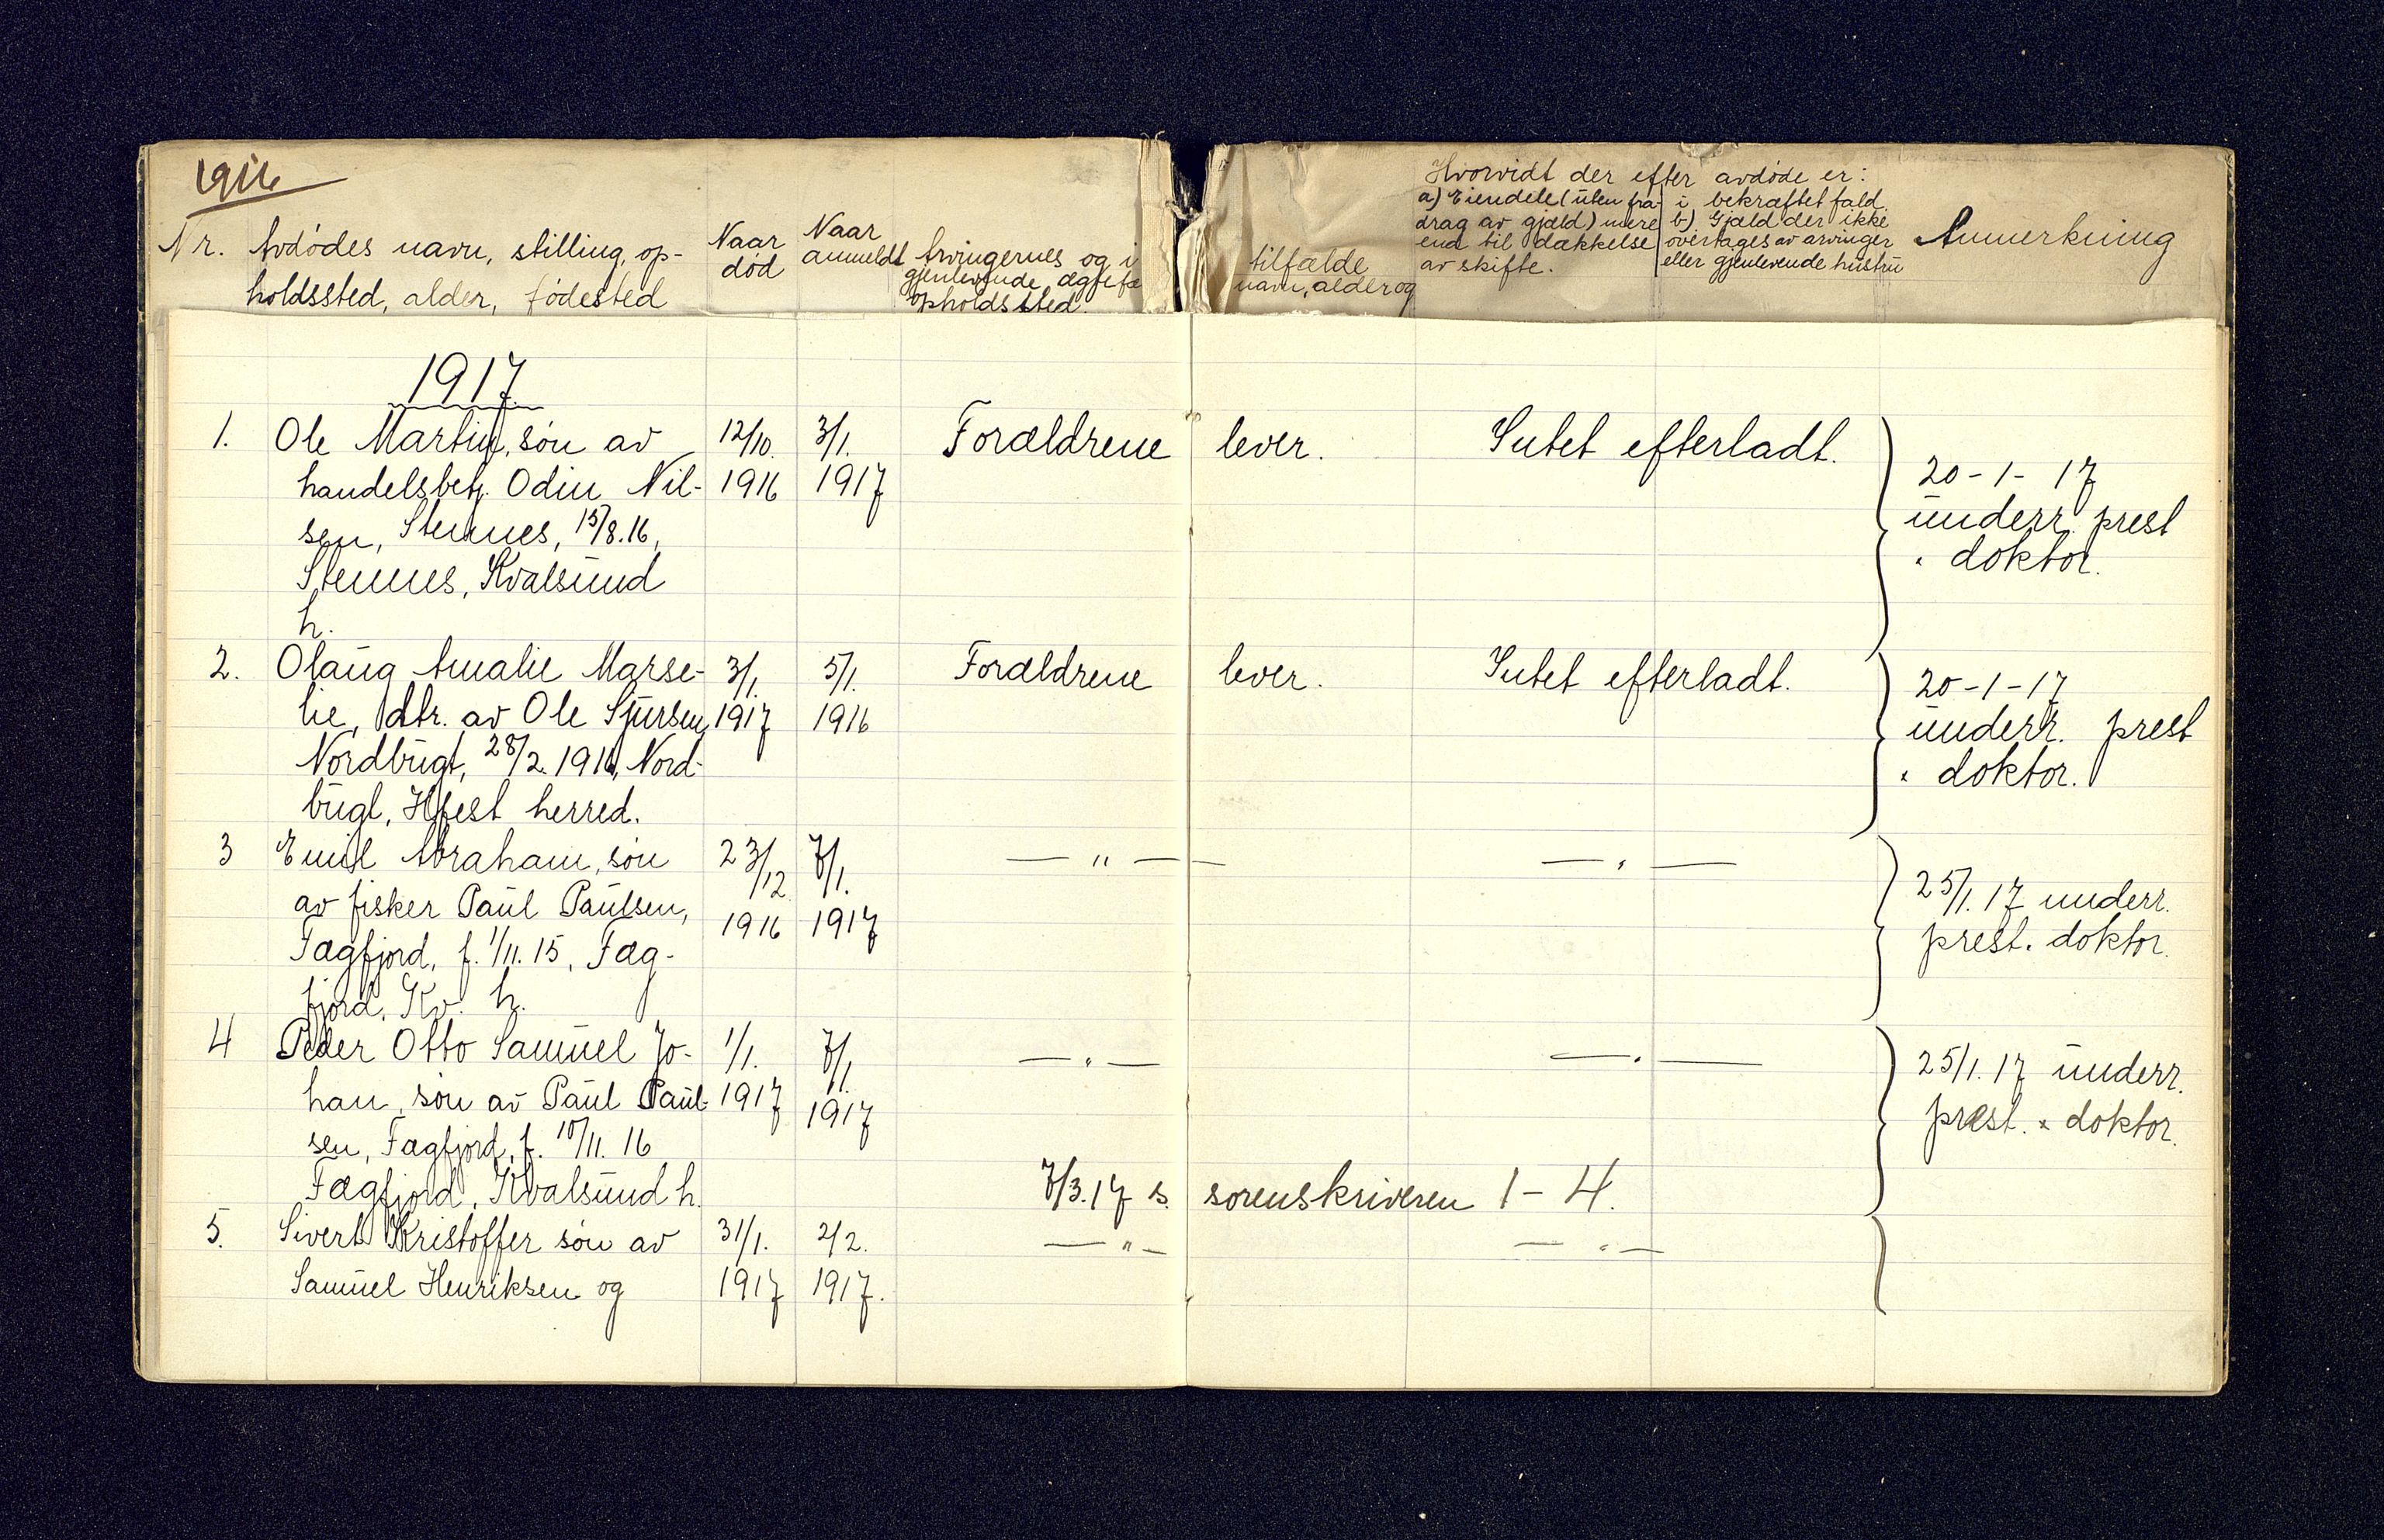 1916
Nr. Avdødes navn, stilling, op-
holdssted, alder, fødested
Naar
død
Naar
anmeldt
Arvingernes og i
gjenlevende ægtefæ
opholdssted.
tilfælde
navn, alder og
Hvorvidt der efter avdøde er:
a) Eiendele (uten fra-
drag av gjæld) mere
end til dækkelse
av skifte.
i bekræftet fald
b) Gjæld der ikke
overtages av arvinger
eller gjenlevende hustru
Anmerkning
1917
1. Ole Martin, søn av 12/10. 3/1. Forældrene lever. Intet efterladt.
handelsbetj. Odin Nil- 1916 1917 20-1-17
sen, Stennes, 15/8.16, underr. prest
Stennes, Kvalsund " doktor.
h.
2. Olaug Amalie Marse- 3/1. 5/1. Forældrene lever. Intet efterladt. 20-1-17
lie, dtr. av Ole Sjursen, 1917 1916 underr. prest
Nordbugt, 28/2. 1916, Nord- " doktor.
bugt, Hfest herred.
3 Emil Abraham, søn 23/12 7/1. — " — — " —
av fisker Paul Paulsen, 1916 1917 25/1. 17 underr.
Fægfjord, f. 1/11. 15, Fæg- prest. " doktor.
fjord, Kv. h.
4 Peder Otto Samuel Jo- 1/1. 7/1. — " — — " — 25/1. 17 underr.
han, søn av Paul Paul- 1917 1917 prest. " doktor.
sen, Fægfjord, f. 10/11. 16
Fægfjord, Kvalsund h. 7/3. 17 s. sorenskriveren 1-4.
5. Sivert Kristoffer søn av 31/1. 2/2. — " — — " —
Samuel Henriksen og 1917 1917.